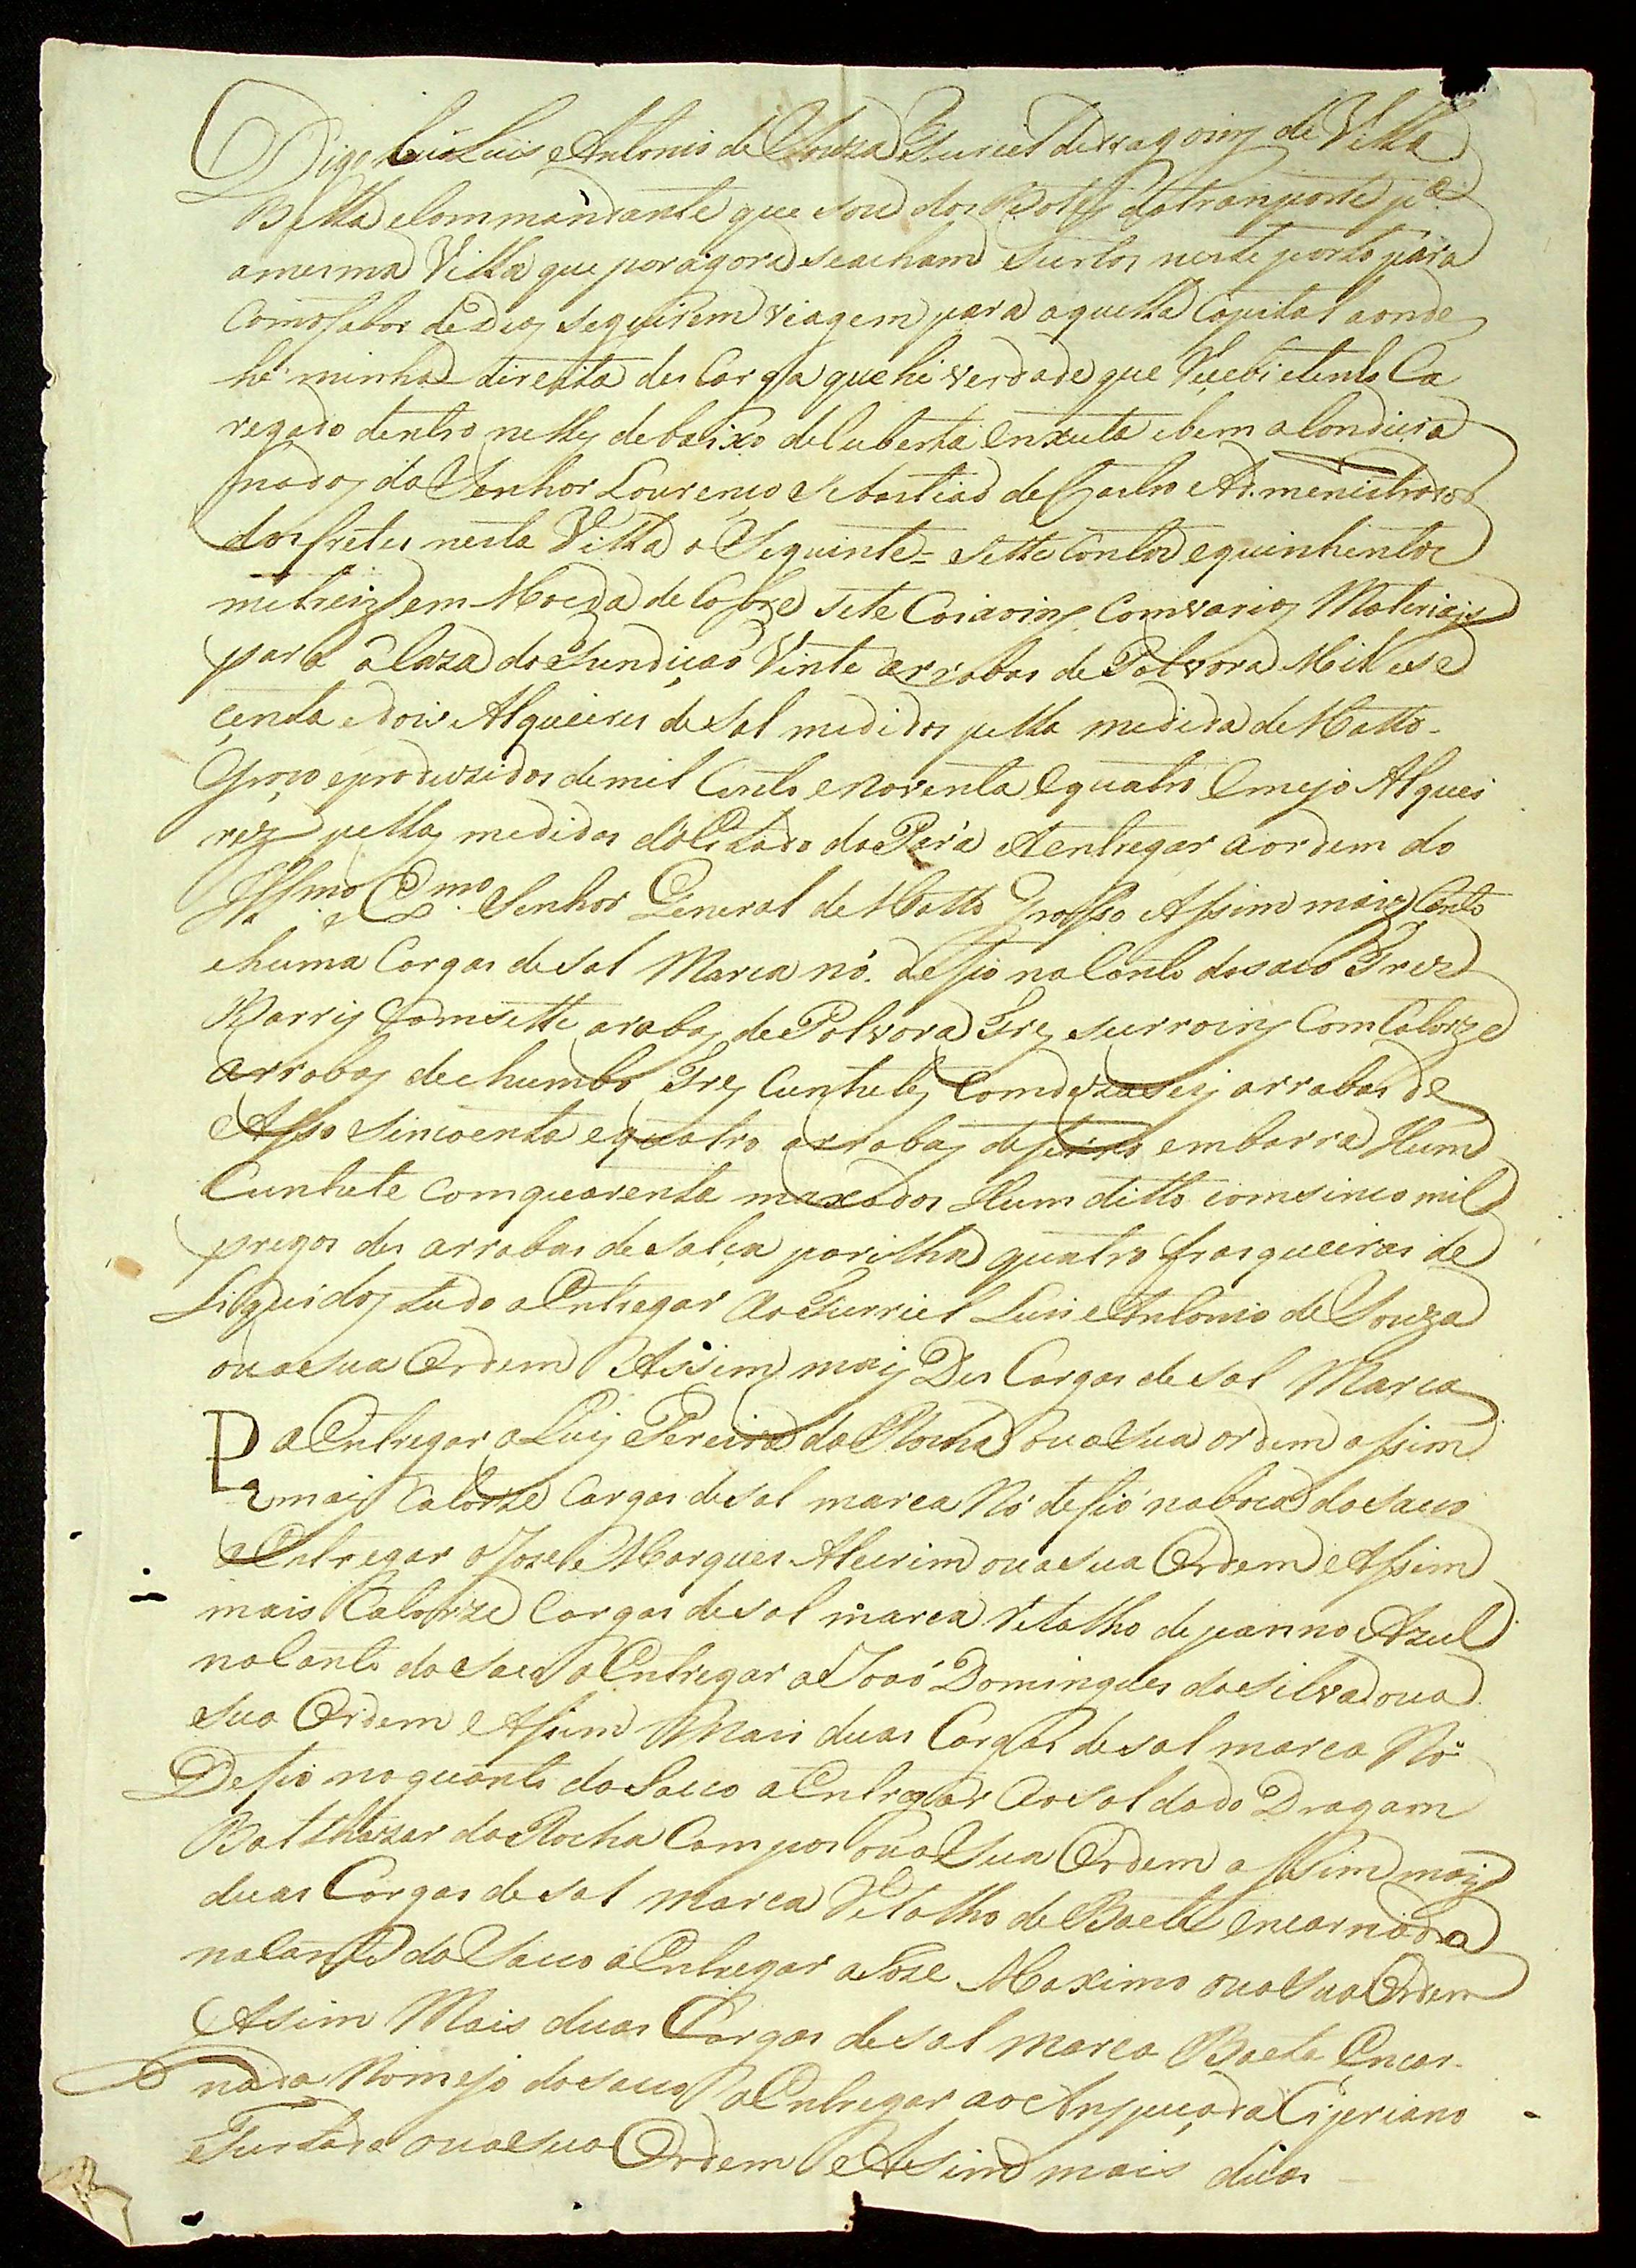 Digo Eu Luis Antonio de Souza Furiel de Dragoins de Villa
Bella e Commandante que sou dos Botes do transporte pª
a mesma Villa que por agora se acham surtos neste porto para
Com o fabor de Deos seguirem viagem para aquella Capital aonde
he minha direita des Carga que he verdade que Recebi e tenho Ca
regado dentro nelles debaixo de Cuberta enxuta e bem a Condicio
nados do Senhor Lourenço Sebastiaõ de Castro Admenistrador
dos fretes nesta Villa o Seguinte = Sette Contos e quinhentos
mil reiz em Moeda de Cobre sete Caixoins Com varios Materiais
para a Caza do fundiçaõ Vinte arrobas de Polvora Mil e se
çenta e dois Alqueires de Sal medidos pella medida de Matto-
Groço e produzidos de mil Cento e Noventa e quatro e mejo Alquei
rez pellas medidas do Estado do Pará A entregar a ordem do
Illmo e Exmo Senhor General de Matto Grosso Assim mais Cento
e huma Cargas de Sal Marca nó de fio no Canto do saco Trez
Barris Com sette arobas de Polvora Tres surroins Com Catorze
arrobas de chumbo Tres Cunhetes Com dezaseis arrobas de
Asso Sincoenta e quatro arrobas de ferro em barra Hum
Cunhete com quarenta maxados Hum ditto com sinco mil
pregos des arrobas de Salça parilha quatro frasqueiras de
Liquidos tudo a Entregar Ao Furriel Luis Antonio de Souza
ou a sua Ordem Assim mais Des Cargas de sal Marca
R a Entregar a Luis Pereira da Rocha ou a Sua ordem assim
mais Catorze Cargas de sal marca Nó de fio na boca do saco
a Entregar a Joze Marques Alecrim ou a sua Ordem Assim
mais Catorze Cargas de sal marca Retalho de panno Azul
no Canto do saco a Entregar a Joaõ Domingues da Silva ou a
sua Ordem Assim Mais duas Cargas de sal marca Nó
De fio no quanto do Saco a Entregar Ao soldado Dragam
Balthazar da Rocha Campos ou a Sua Ordem assim mais
duas Cargas de sal marca Retalho de Baeta encarnada
no Canto do Saco a Entregar a Joze Maximo ou a Sua Ordem
Asim Mais duas Cargas de sal marca Baeta Encar-
nada No mejo do saco a Entregar ao Anspeçada Cipriano
Furtado ou a sua Ordem Asim mais duas